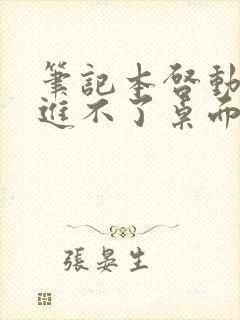 筆記本啓動
進不了桌面
張晏生